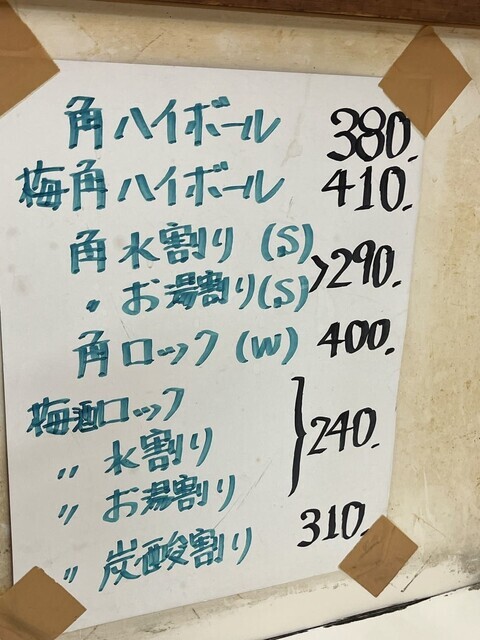 角ハイボール 380.
梅角ハイボール 410.
角水割り(S)
〃お湯割り(S) >290.
角ロック(W) 400.
梅酒ロック
〃水割り }240.
〃お湯割り
〃炭酸割り 310.